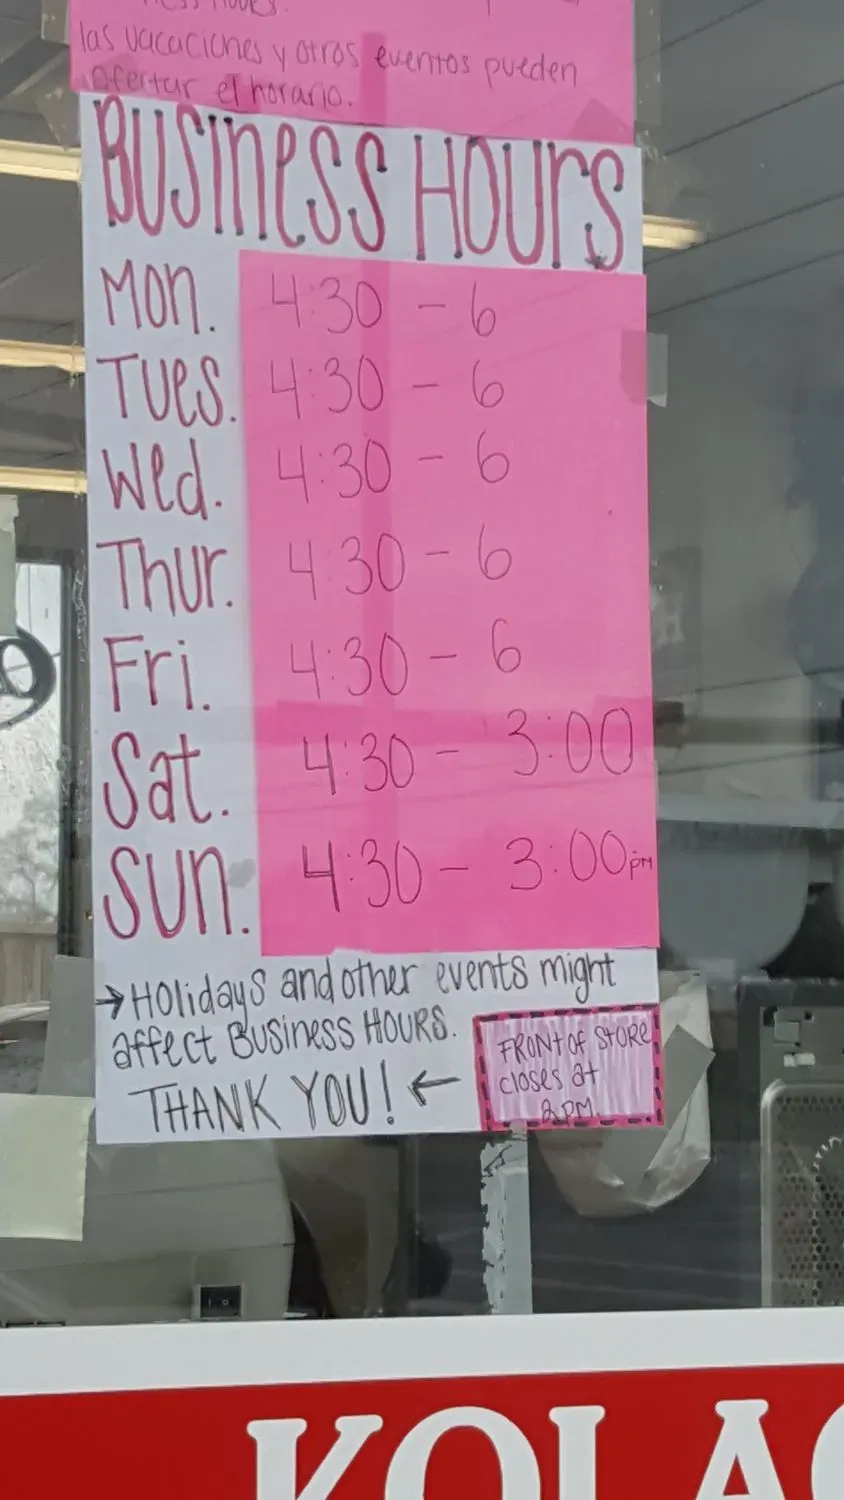 las vacaciones y otros eventos pueden
afertar el horario.
BUSINESS HOURS
Mon. 4:30 - 6
Tues. 4:30 - 6
Wed. 4:30 - 6
Thur. 4:30 - 6
Fri. 4:30 - 6
Sat. 4:30 - 3:00
Sun. 4:30 - 3:00pm
→ Holidays and other events might
affect Business HOURS.
THANK YOU! ←
FRONT of STORE
closes at
2PM.